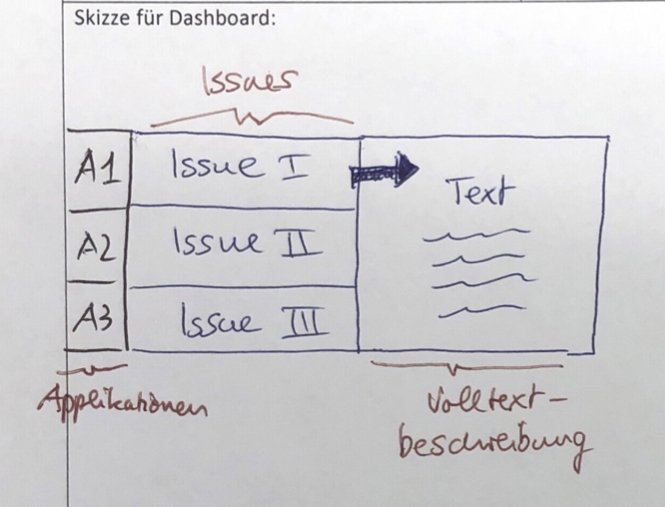 Skizze für Dashboard:
Issues
A1 Issue I Text
A2 Issue II
A3 Issue III
Applikationen
Volltext-
beschreibung